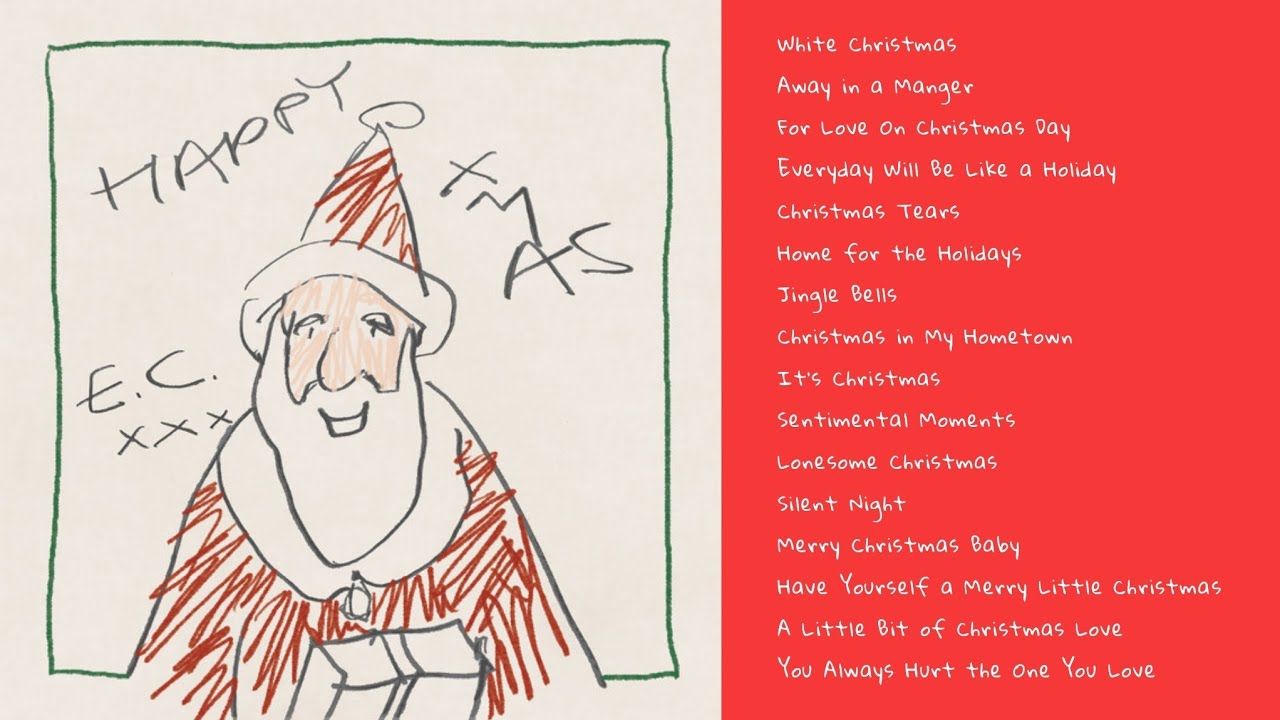 HAPPY
XMAS
E.C.
xxx
White Christmas
Away in a Manger
For Love On Christmas Day
Everyday Will Be Like a Holiday
Christmas Tears
Home for the Holidays
Jingle Bells
Christmas in My Hometown
It's Christmas
Sentimental Moments
Lonesome Christmas
Silent Night
Merry Christmas Baby
Have Yourself a Merry Little Christmas
A Little Bit of Christmas Love
You Always Hurt the One You Love